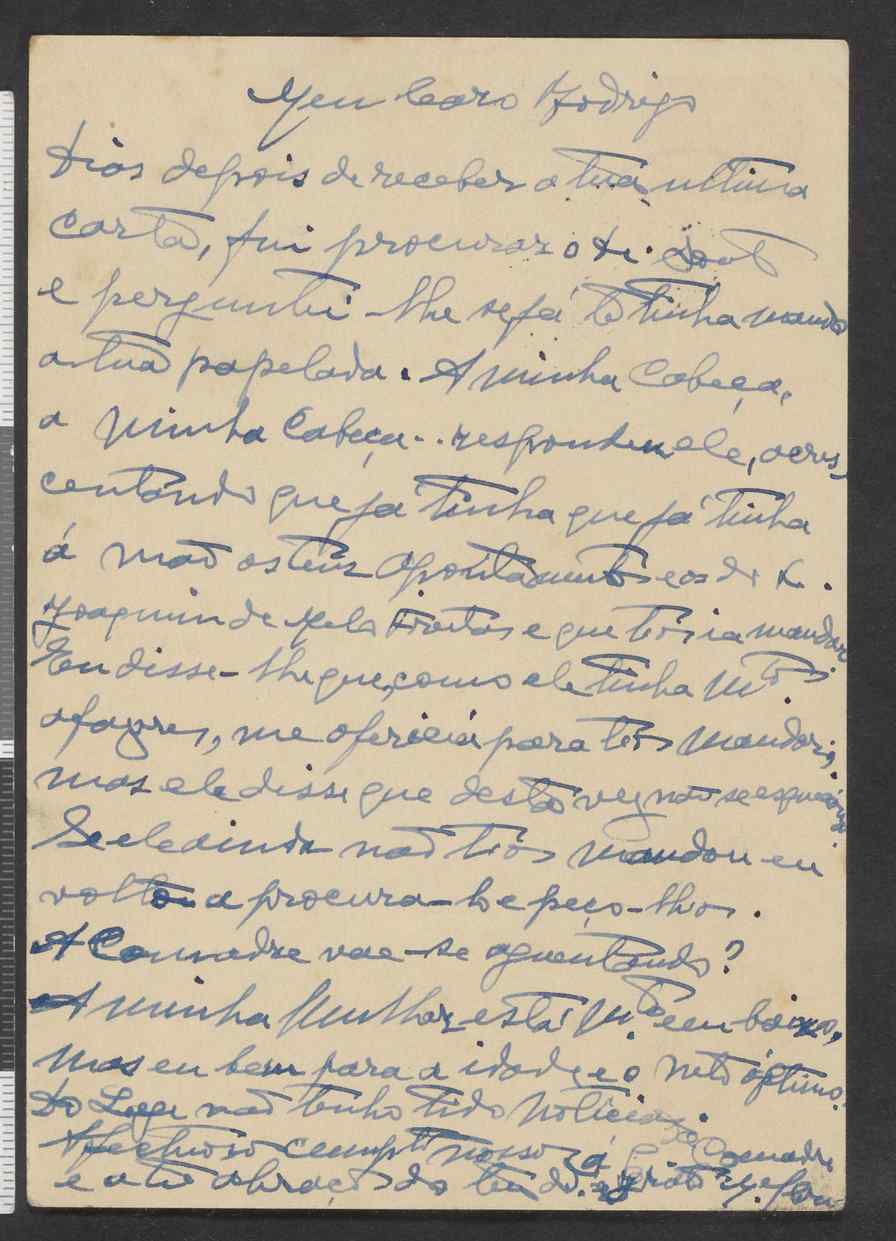 Meu Caro Rodrigo
Dias depois de receber a tua ultima
Carta, fui procurar o Dr.
e perguntei-lhe se já to tinha mandº
a tua papelada. A minha Cabeça,
a minha Cabeça... respondeu ele, acres-
centando que já tinha que já tinha
á mão os teus apontamentos e os do D.
Joaquim de Melo Freitas e que tos ia mandar
Eu disse-lhe que, como ele tinha Mtos
afazeres, me oferecia para tos mandar,
mas ele disse que desta vez não se esquecia
Se ele ainda não tos mandou eu
volto a procura-lo e peço-lhos.
A Comadre vae-se aguentando?
A minha Mulher está Mto em baixo,
mas eu bem para a idade e o neto óptimo.
Do não tenho tido Noticias.
Afectuosos cumptos nossos á Comadre
e a ti o abraço do teu